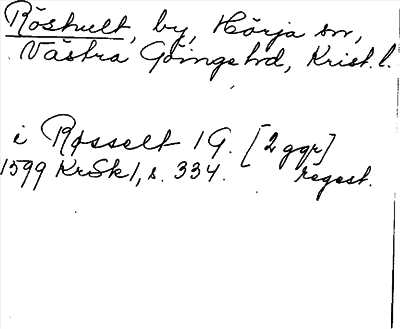 Röshult, by, Hörja sn,
Västra Göinge hd, Krist. l.
i Rosselt 1 G. [2 ggr]
1599 KrSk 1, s. 334. regest.